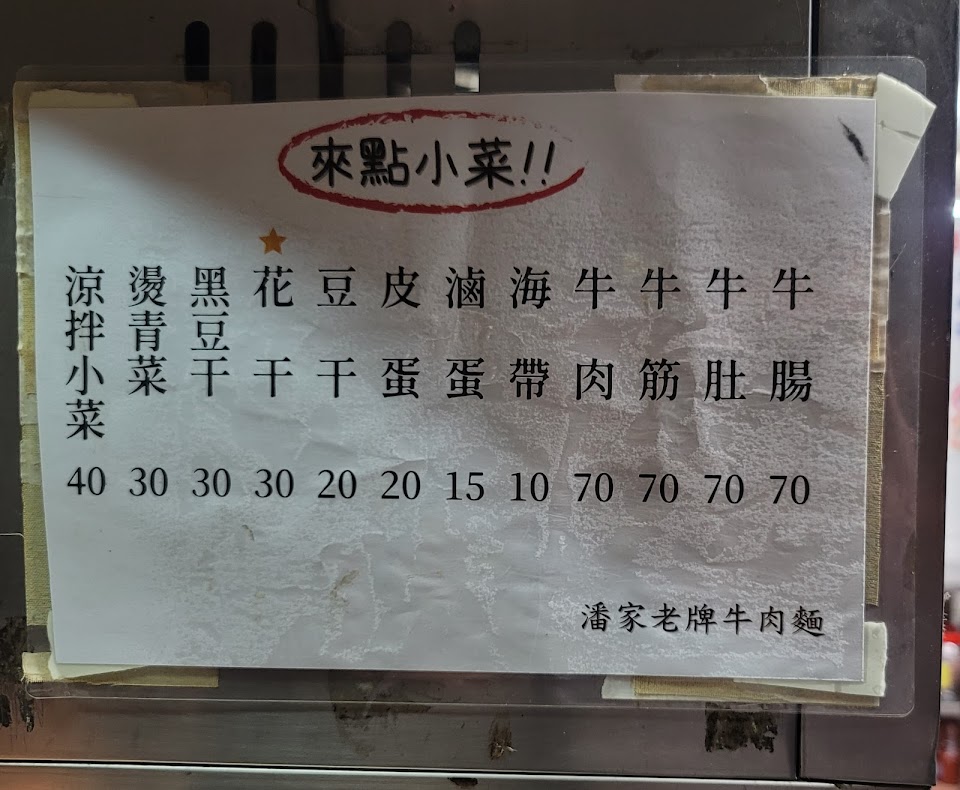 來點小菜!!
牛腸 70
牛肚 70
牛筋 70
牛肉 70
海帶 10
滷蛋 15
皮蛋 20
豆干 20
花干 30
黑豆干 30
燙青菜 30
涼拌小菜 40
潘家老牌牛肉麵